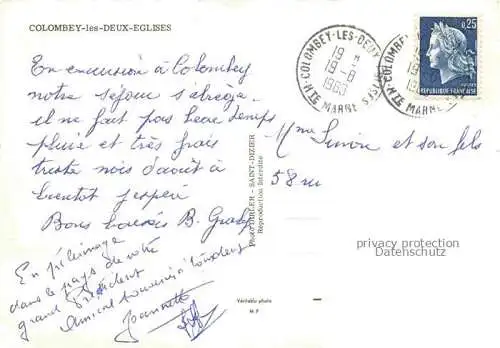 COLOMBEY-les-DEUX-EGLISES
En excursion à Colombey
notre séjour s'abrège
il ne fait pas beau temps
pluie et très frais
triste mois d'août à
bientôt j'espère
Bons baisers B.
En pèlerinage
dans le pays de notre
grand Président
Amical souvenir
Jeannette
Photo DIDIER - SAINT-DIZIER
Reproduction Interdite
Véritable photo
M F
COLOMBEY-LES-DEUX
19 H
19-8
HTE MARNE
COLOMBEY
HTE MARNE
0,25
REPUBLIQUE FRANCAISE
Mme Simon et son fils
58 ru
privacy protection
Datenschutz